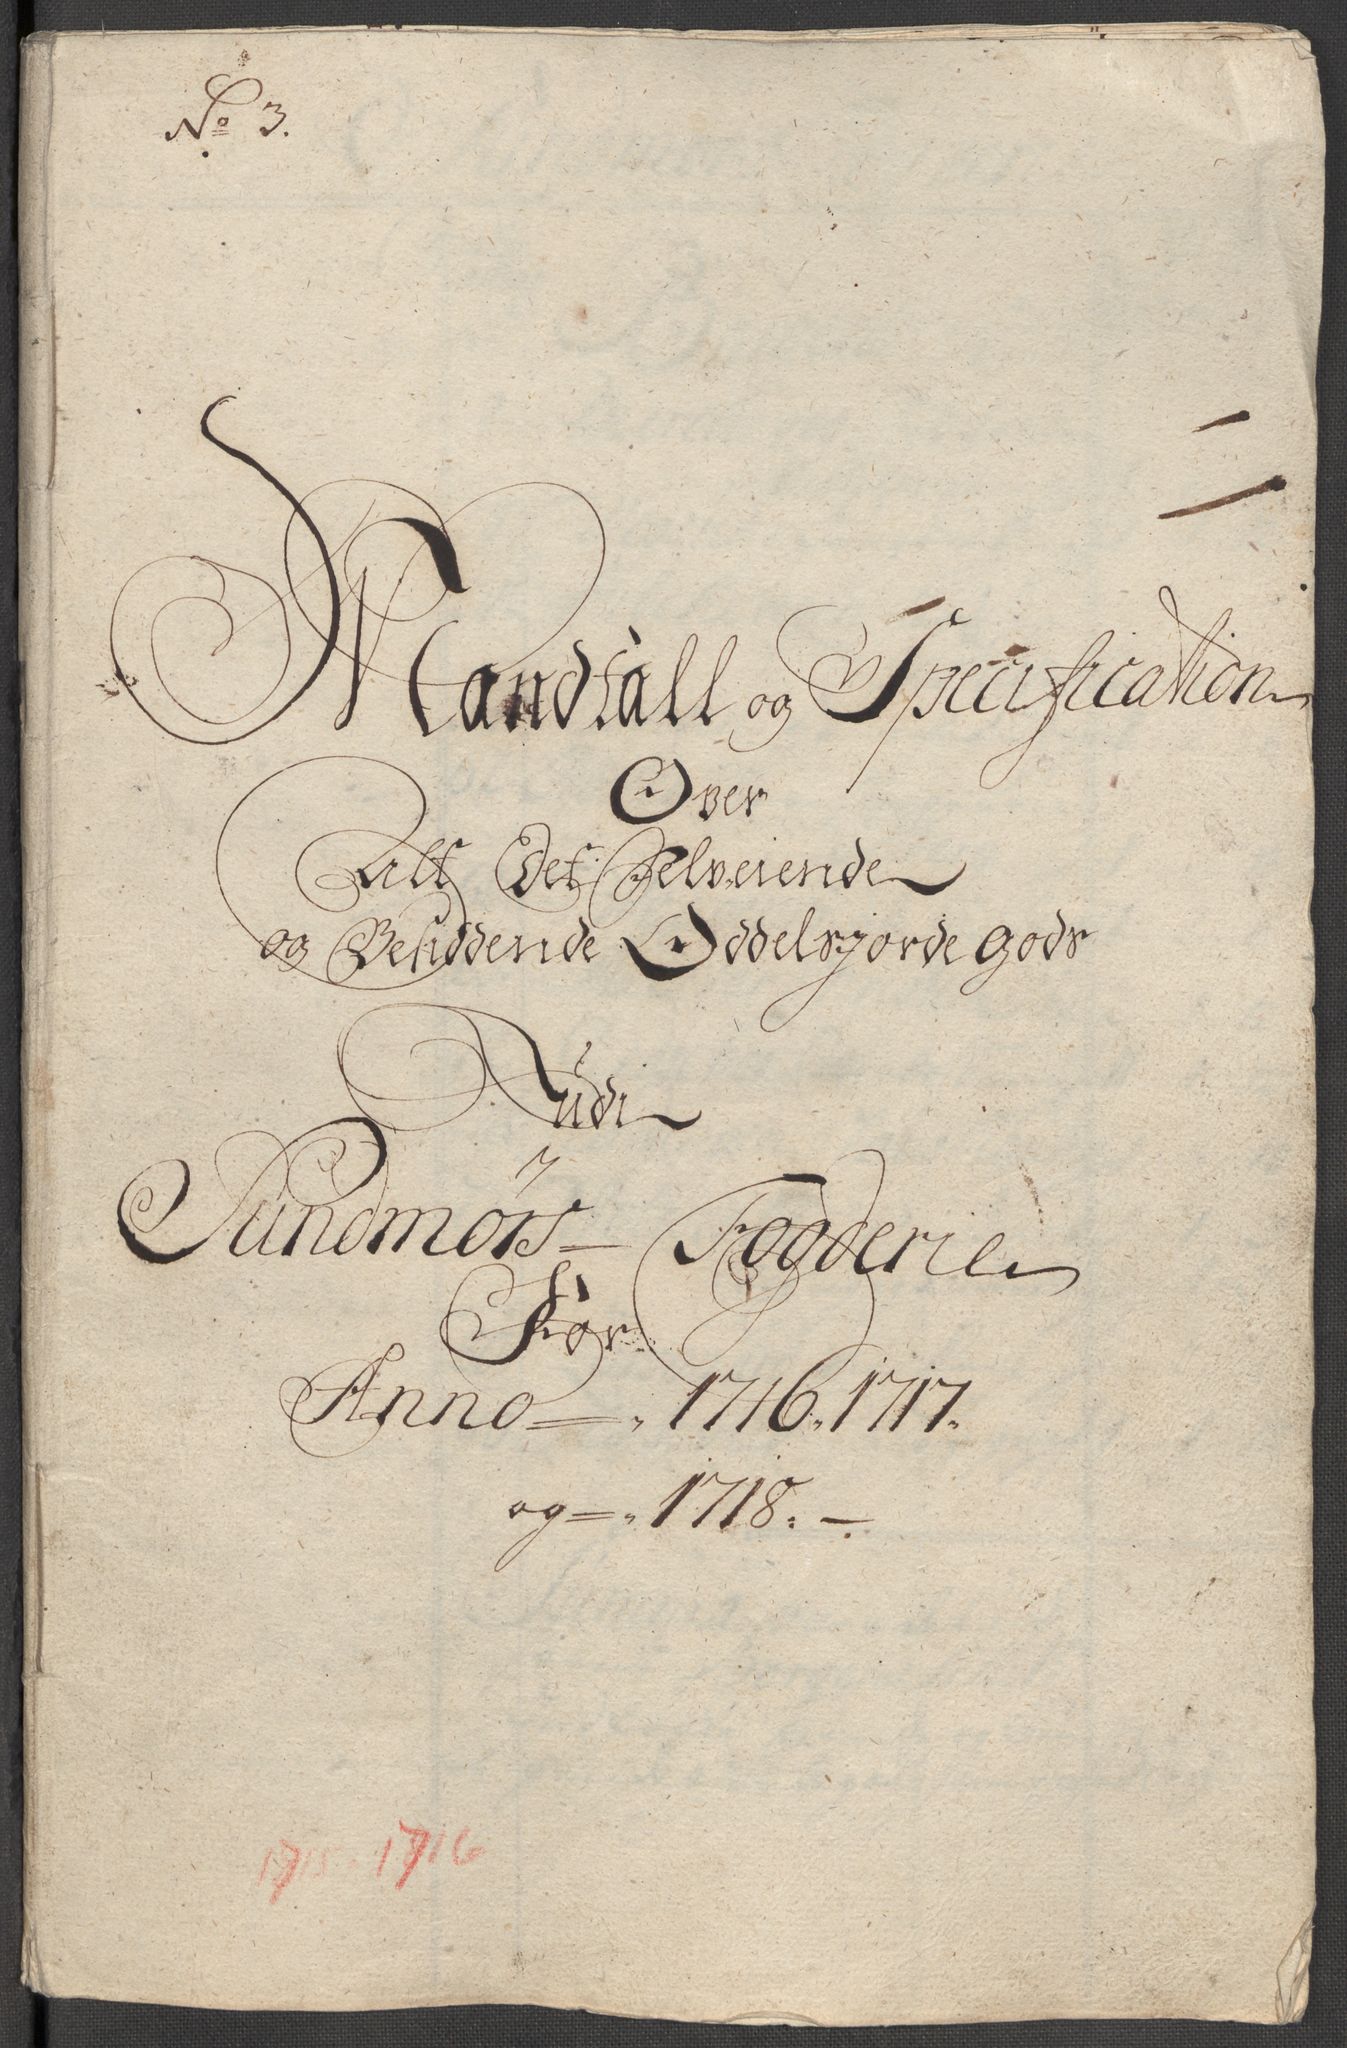 No 3.
Mandtall og Specification
Over
Alt Det Selveiende
og Besiddende Oddelsjorde gods
Udi
Sundmørs Fogderie
For
Anno 1716. 1717.
og 1718.
1715-1716